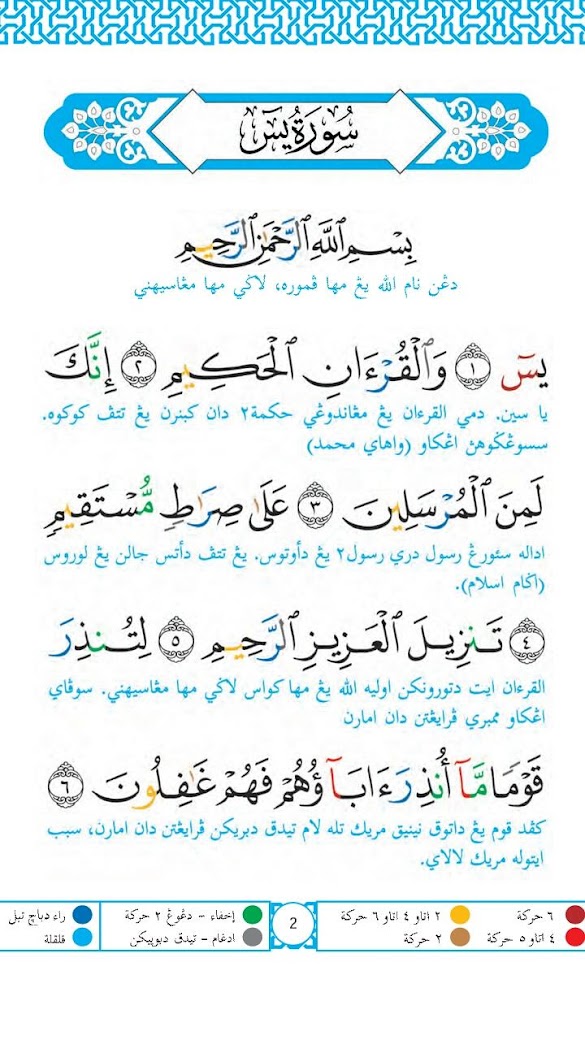 سُورَةُ يسٓ
بِسْمِ ٱللَّهِ ٱلرَّحْمَٰنِ ٱلرَّحِيمِ
دڠن نام الله يڠ مها ڤموره، لاݢي مها مڠاسيهني
يسٓ ۝١ وَٱلْقُرْءَانِ ٱلْحَكِيمِ ۝٢ إِنَّكَ
يا سين. دمي القرءان يڠ مڠاندوڠي حكمة٢ دان كبنرن يڠ تتڤ كوكوه.
سسوڠݢوهن اڠكاو (واهاي محمد)
لَمِنَ ٱلْمُرْسَلِينَ ۝٣ عَلَىٰ صِرَٰطٍ مُّسْتَقِيمٍ
اداله سئورڠ رسول دري رسول٢ يڠ دأوتوس. يڠ تتڤ دأتس جالن يڠ لوروس
(اݢام اسلام).
۝٤ تَنزِيلَ ٱلْعَزِيزِ ٱلرَّحِيمِ ۝٥ لِتُنذِرَ
القرءان ايت دتورونكن اوليه الله يڠ مها كواس لاݢي مها مڠاسيهني. سوڤاي
اڠكاو ممبري ڤرايڠتن دان امارن
قَوْمًا مَّآ أُنذِرَ ءَابَآؤُهُمْ فَهُمْ غَٰفِلُونَ ۝٦
كڤد قوم يڠ داتوق نينيق مريك تله لام تيدق دبريكن ڤرايڠتن دان امارن، سبب
ايتوله مريك لالاي.
٦ حركة
٢ اتاو ٤ اتاو ٦ حركة
2
إخفاء - دڠوڠ ٢ حركة
راء دباچ تبل
٤ اتاو ٥ حركة
٢ حركة
ادغام - تيدق دبوپيكن
قلقلة